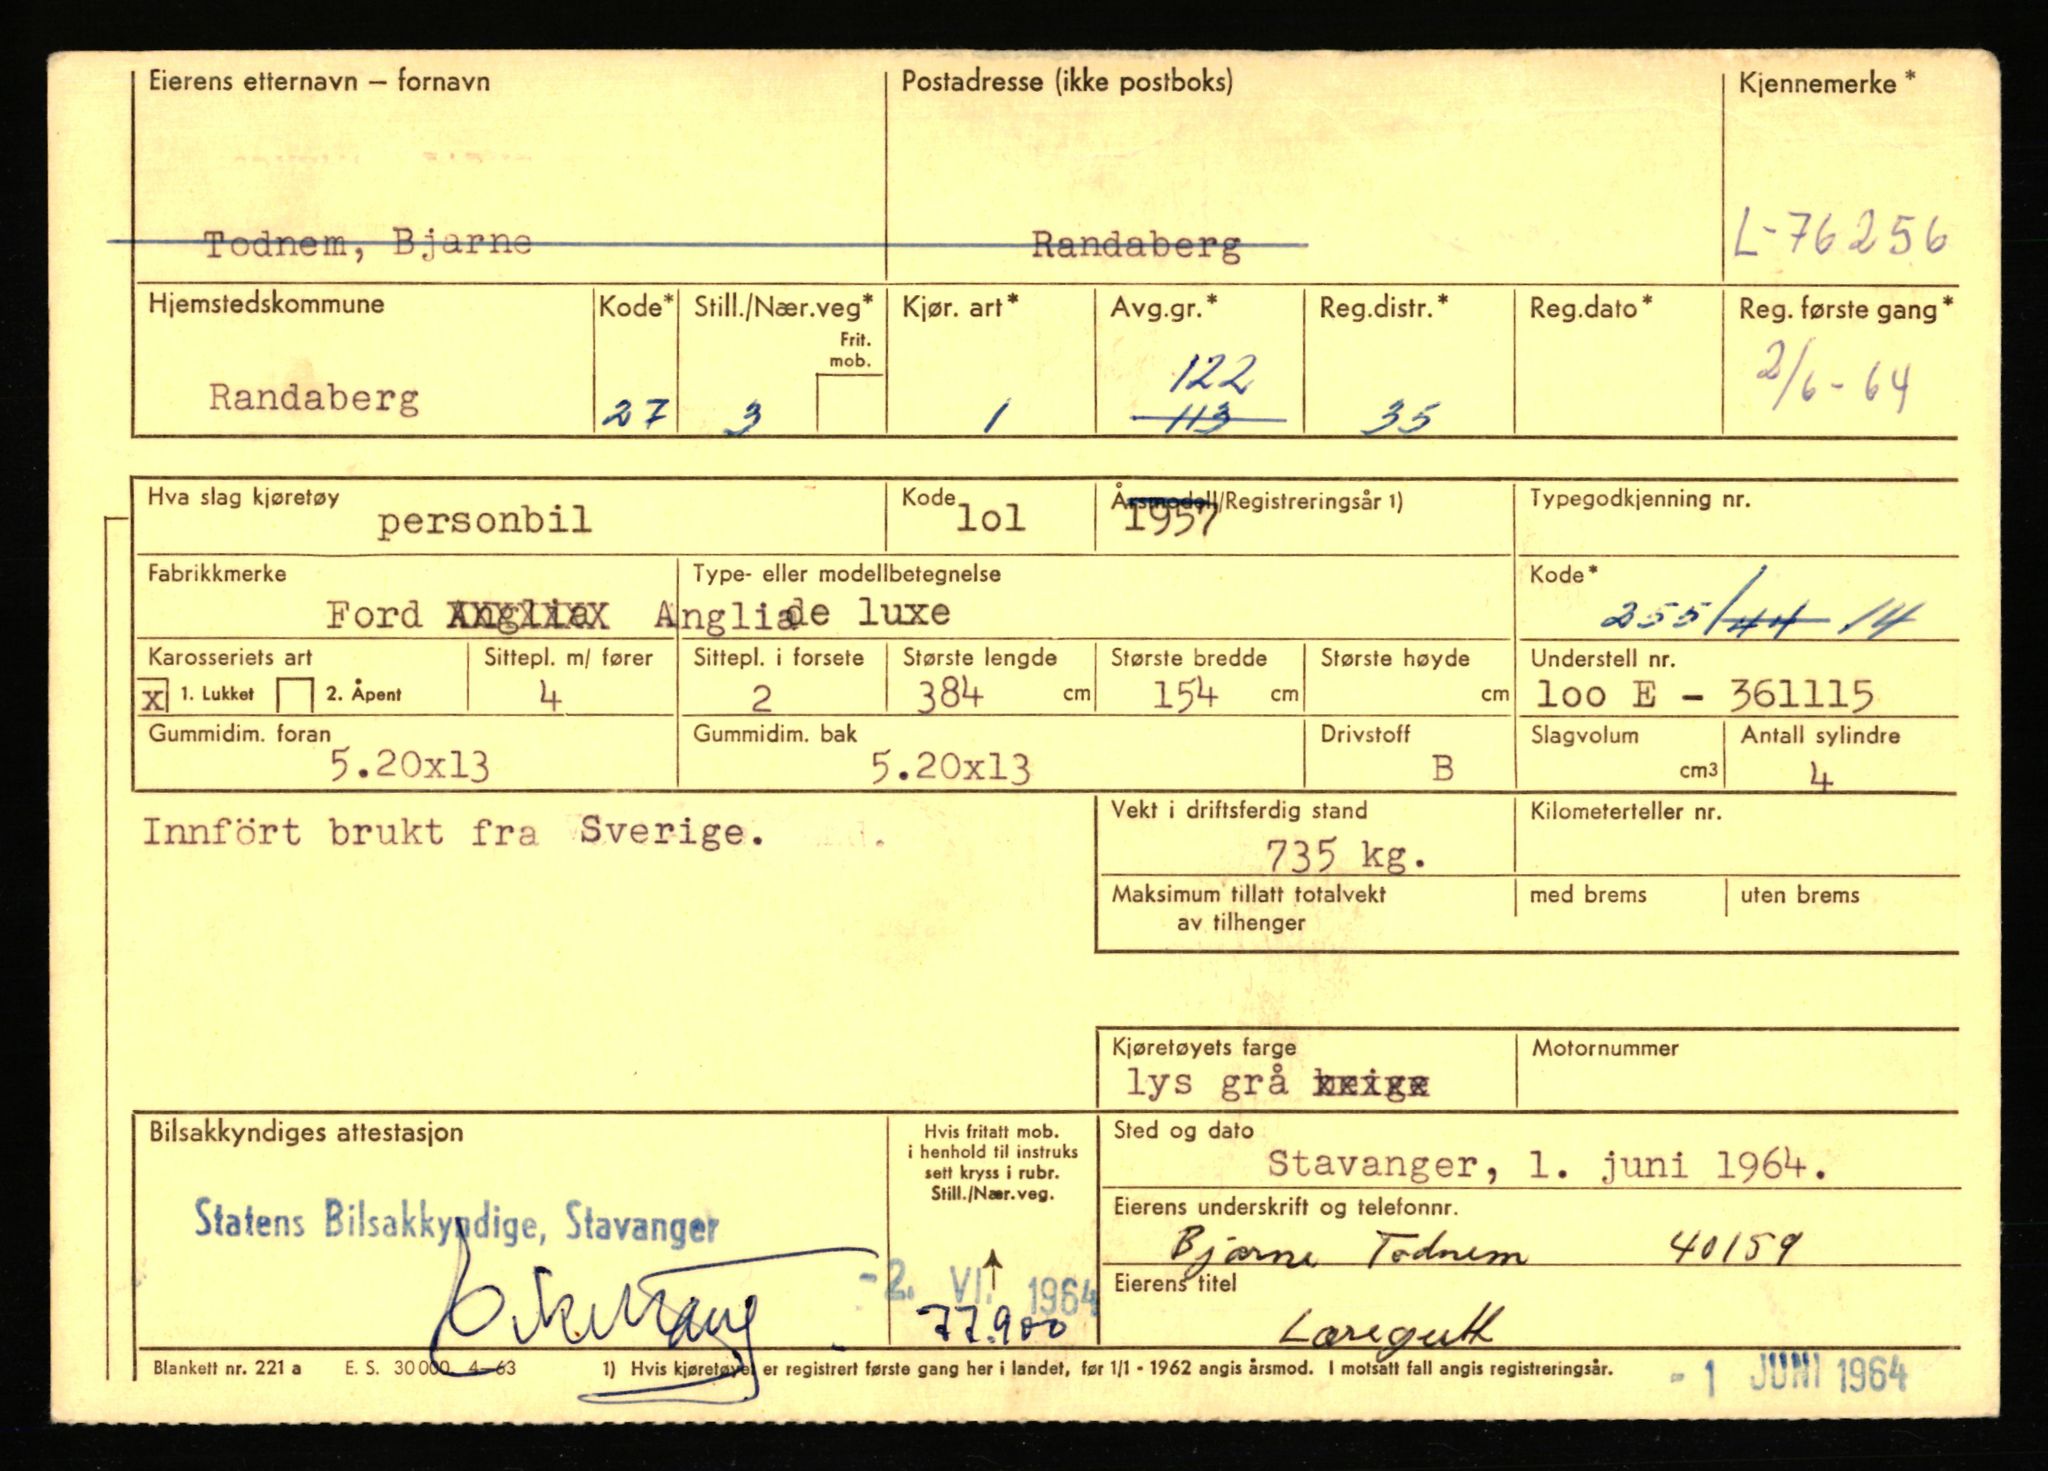 Eierens etternavn – fornavn Postadresse (ikke postboks) Kjennemerke*
Todnem, Bjarne Randaberg L-76256
Hjemstedskommune Kode* Still./Nær.veg* Kjør. art* Avg.gr.* Reg.distr.* Reg.dato* Reg. første gang*
Frit.
mob.
122 2/6-64
Randaberg 27 3 1 113 35
Hva slag kjøretøy Kode Årsmodell/Registreringsår 1) Typegodkjenning nr.
personbil lol 1957
Fabrikkmerke Type- eller modellbetegnelse Kode*
Ford Anglia Anglia de luxe 255/44 14
Karosseriets art Sittepl. m/ fører Sittepl. i forsete Største lengde Største bredde Største høyde Understell nr.
x 1. Lukket 2. Åpent 4 2 384 cm 154 cm cm loo E - 361115
Gummidim. foran Gummidim. bak Drivstoff Slagvolum Antall sylindre
5.20x13 5.20x13 B cm3 4
Innført brukt fra Sverige.
Vekt i driftsferdig stand Kilometerteller nr.
735 kg.
Maksimum tillatt totalvekt med brems uten brems
av tilhenger
Kjøretøyets farge Motornummer
lys grå beige
Bilsakkyndiges attestasjon
Hvis fritatt mob.
i henhold til instruks
sett kryss i rubr.
Still./Nær.veg.
Sted og dato
Stavanger, 1. juni 1964.
Statens Bilsakkyndige, Stavanger
Eierens underskrift og telefonnr.
Bjarne Todnem 40159
-2. VI. 1964
77.900
Eierens titel
Læregutt
Blankett nr. 221 a E. S. 30000 4-63 1) Hvis kjøretøyet er registrert første gang her i landet, før 1/1 - 1962 angis årsmod. I motsatt fall angis registreringsår.
- 1 JUNI 1964